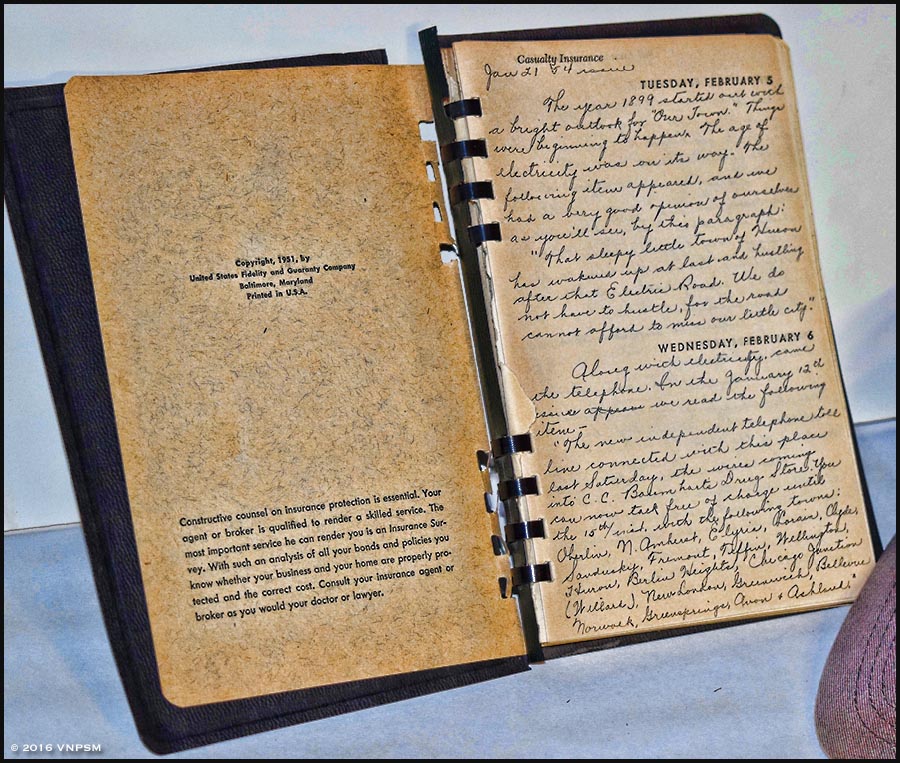 Copyright, 1951, by
United States Fidelity and Guaranty Company
Baltimore, Maryland
Printed in U.S.A.
Constructive counsel on insurance protection is essential. Your
agent or broker is qualified to render a skilled service. The
most important service he can render you is an Insurance Sur-
vey. With such an analysis of all your bonds and policies you
know whether your business and your home are properly pro-
tected and the correct cost. Consult your insurance agent or
broker as you would your doctor or lawyer.
Casualty Insurance
Jan 21 54 issue
TUESDAY, FEBRUARY 5
The year 1899 started out with
a bright outlook for "Our Town." Things
were beginning to happen. The age of
electricity was on its way. The
following item appeared, and we
had a very good opinion of ourselves
as you'll see, by this paragraph:
"That sleepy little town of Huron
has wakened up at last and hustling
after that Electric Road. We do
not have to hustle, for the road
cannot afford to miss our little city."
WEDNESDAY, FEBRUARY 6
Along with electricity, came
the telephone. In the January 12th
issue we read the following
item -
"The new independent telephone toll
line connected with this place
last Saturday, the wires coming
into C.C. Baumharts Drug Store. You
can now talk free of charge until
the 15th inst. with the following towns:
Oberlin, N. Amherst, Elyria, Lorain, Clyde,
Sandusky, Fremont, Tiffin, Wellington,
Huron, Berlin Heights, Chicago Junction
(Willard), New London, Greenwich, Bellevue
Norwalk, Greensprings, Avon & Ashland."
© 2016 VNPSM